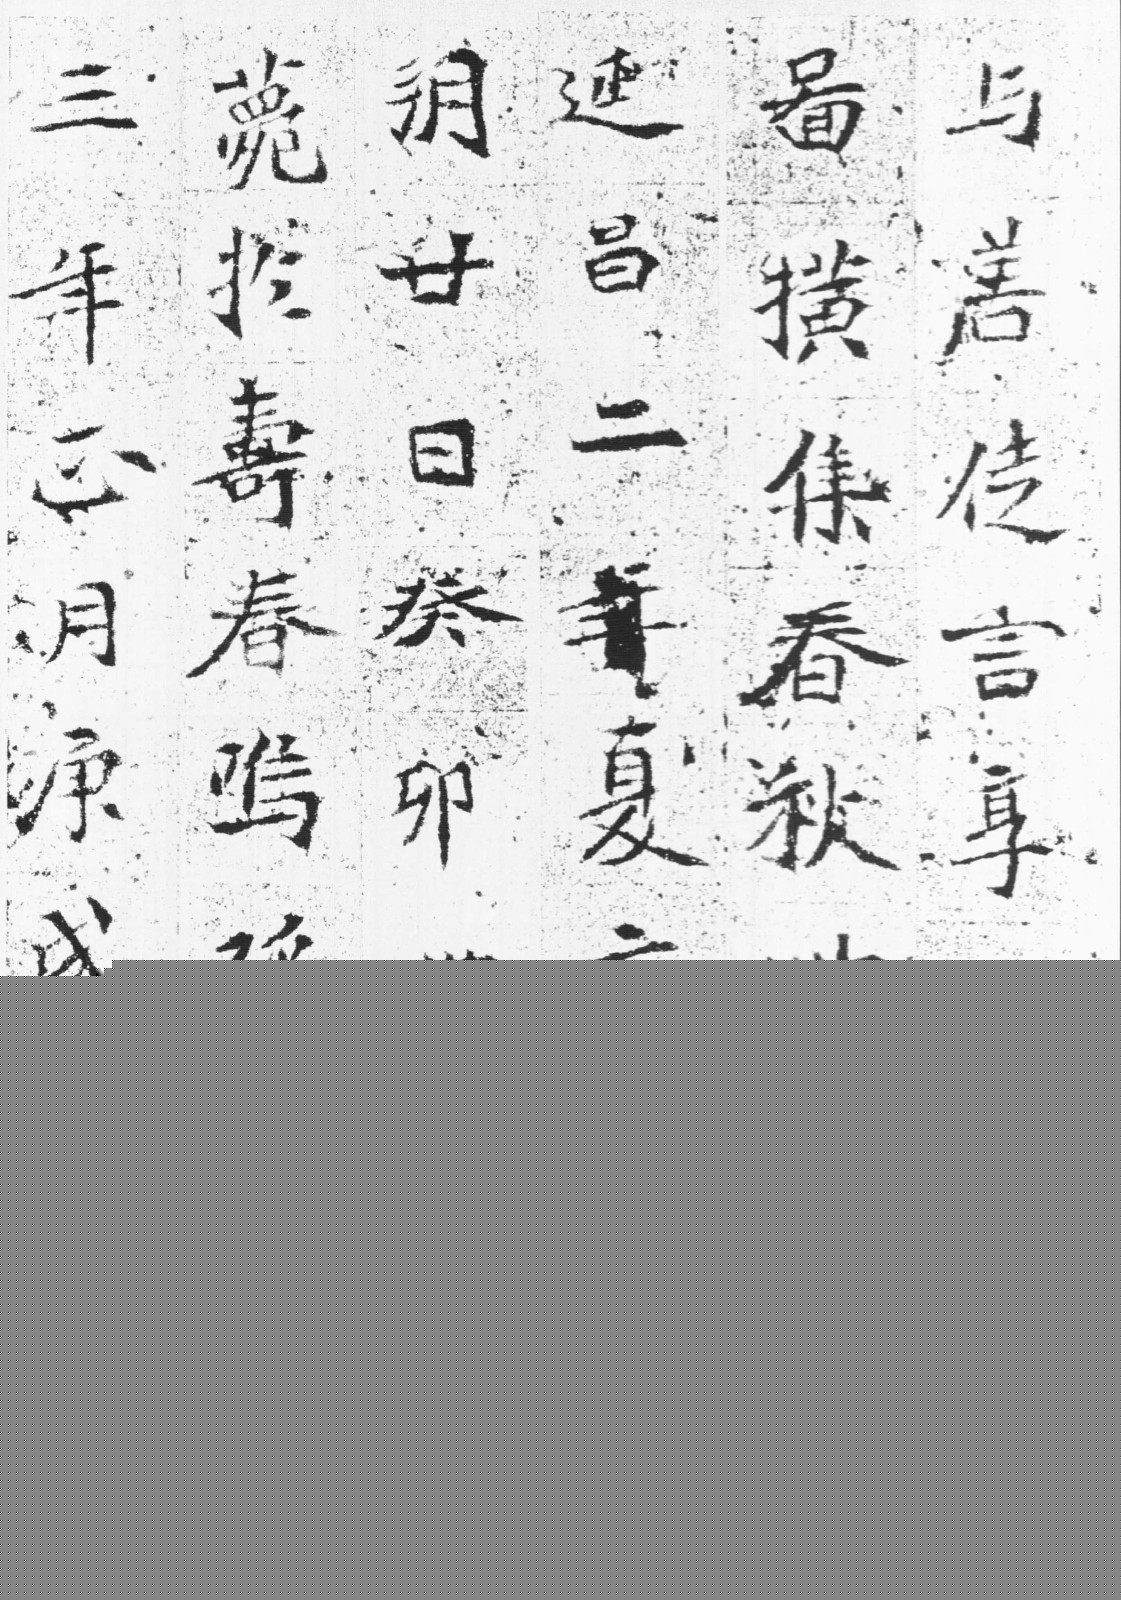 与善徒言享
啚橫集春秋
延昌二年夏
朔廿日癸卯
薨於壽春嗚
三年正月